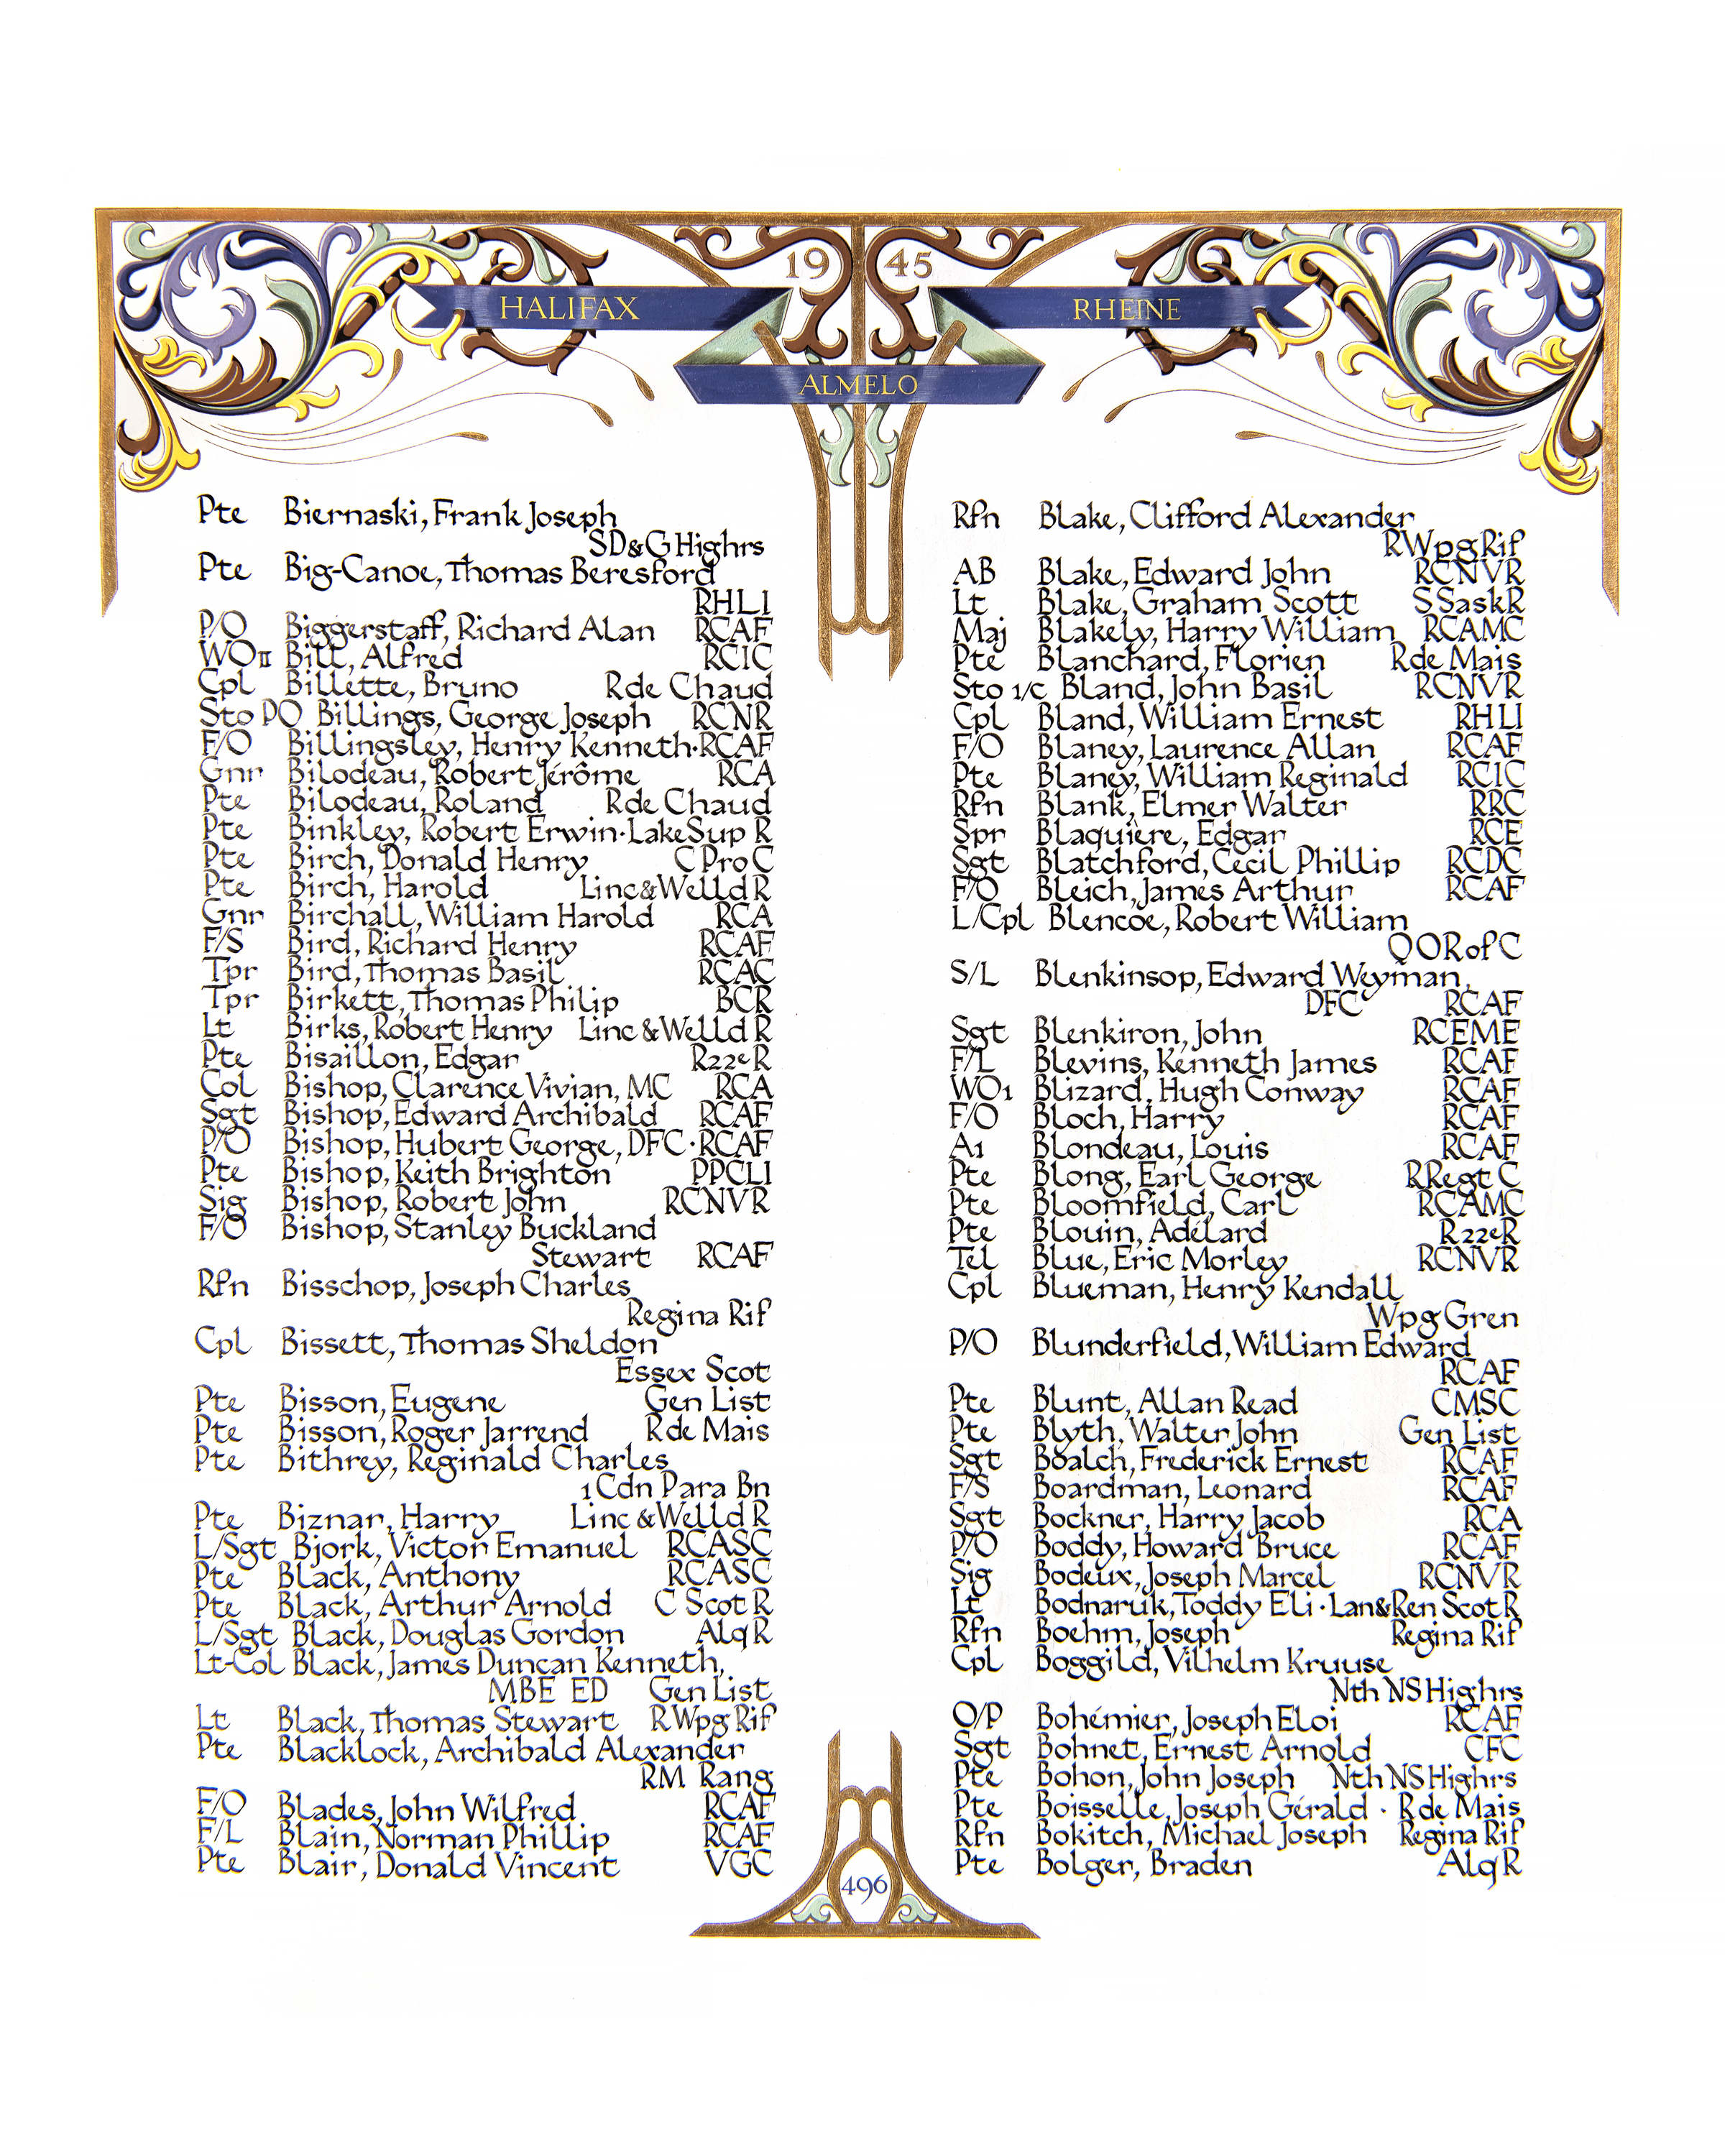 19 45
HALIFAX
RHEINE
ALMELO
Pte Biernaski, Frank Joseph
SD&G Highrs
Pte Big-Canoe, Thomas Beresford
RHLI
P/O Biggerstaff, Richard Alan RCAF
WOII Bill, Alfred RCIC
Cpl Billette, Bruno R de Chaud
Sto PO Billings, George Joseph RCNR
F/O Billingsley, Henry Kenneth·RCAF
Gnr Bilodeau, Robert Jérôme RCA
Pte Bilodeau, Roland R de Chaud
Pte Binkley, Robert Erwin·Lake Sup R
Pte Birch, Donald Henry C Pro C
Pte Birch, Harold Linc & Welld R
Gnr Birchall, William Harold RCA
F/S Bird, Richard Henry RCAF
Tpr Bird, Thomas Basil RCAC
Tpr Birkett, Thomas Philip BCR
Lt Birks, Robert Henry Linc & Welld R
Pte Bisaillon, Edgar R22eR
Col Bishop, Clarence Vivian, MC RCA
Sgt Bishop, Edward Archibald RCAF
P/O Bishop, Hubert George, DFC·RCAF
Pte Bishop, Keith Brighton PPCLI
Sig Bishop, Robert John RCNVR
F/O Bishop, Stanley Buckland
Stewart RCAF
Rfn Bisschop, Joseph Charles
Regina Rif
Cpl Bissett, Thomas Sheldon
Essex Scot
Pte Bisson, Eugene Gen List
Pte Bisson, Roger Jarrend R de Mais
Pte Bithrey, Reginald Charles
1 Cdn Para Bn
Pte Biznar, Harry Linc & Welld R
L/Sgt Bjork, Victor Emanuel RCASC
Pte Black, Anthony RCASC
Pte Black, Arthur Arnold C Scot R
L/Sgt Black, Douglas Gordon Alq R
Lt-Col Black, James Duncan Kenneth,
MBE ED Gen List
Lt Black, Thomas Stewart R Wpg Rif
Pte Blacklock, Archibald Alexander
RM Rang
F/O Blades, John Wilfred RCAF
F/L Blain, Norman Phillip RCAF
Pte Blair, Donald Vincent VGC
Rfn Blake, Clifford Alexander
R Wpg Rif
AB Blake, Edward John RCNVR
Lt Blake, Graham Scott S Sask R
Maj Blakely, Harry William RCAMC
Pte Blanchard, Florien R de Mais
Sto 1/c Bland, John Basil RCNVR
Cpl Bland, William Ernest RHLI
F/O Blaney, Laurence Allan RCAF
Pte Blaney, William Reginald RCIC
Rfn Blank, Elmer Walter RRC
Spr Blaquière, Edgar RCE
Sgt Blatchford, Cecil Phillip RCDC
F/O Bleich, James Arthur RCAF
L/Cpl Blencoe, Robert William
QOR of C
S/L Blenkinsop, Edward Weyman,
DFC RCAF
Sgt Blenkiron, John RCEME
F/L Blevins, Kenneth James RCAF
WO1 Blizard, Hugh Conway RCAF
F/O Bloch, Harry RCAF
A1 Blondeau, Louis RCAF
Pte Blong, Earl George R Regt C
Pte Bloomfield, Carl RCAMC
Pte Blouin, Adélard R22eR
Tel Blue, Eric Morley RCNVR
Cpl Blueman, Henry Kendall
Wpg Gren
P/O Blunderfield, William Edward
RCAF
Pte Blunt, Allan Read CMSC
Pte Blyth, Walter John Gen List
Sgt Boalch, Frederick Ernest RCAF
F/S Boardman, Leonard RCAF
Sgt Bockner, Harry Jacob RCA
P/O Boddy, Howard Bruce RCAF
Sig Bodeux, Joseph Marcel RCNVR
Lt Bodnaruk, Toddy Eli·Lan&Ren Scot R
Rfn Boehm, Joseph Regina Rif
Cpl Boggild, Vilhelm Kruuse
Nth NS Highrs
O/P Bohémier, Joseph Eloi RCAF
Sgt Bohnet, Ernest Arnold CFC
Pte Bohon, John Joseph Nth NS Highrs
Pte Boisselle, Joseph Gérald · R de Mais
Rfn Bokitch, Michael Joseph Regina Rif
Pte Bolger, Braden Alq R
496